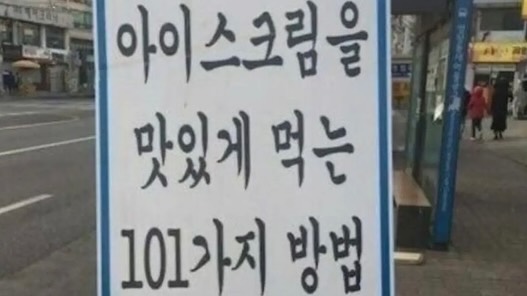 아이스크림을
맛있게 먹는
101가지 방법